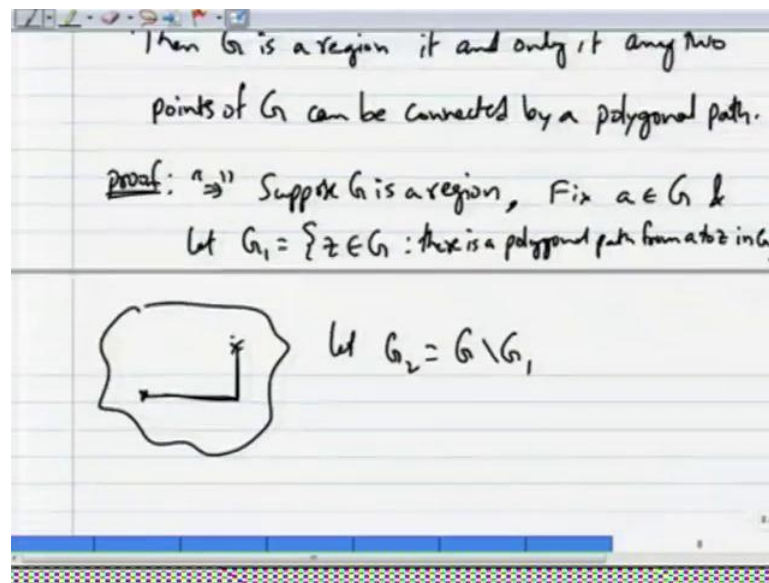 Then G is a region if and only if any two
points of G can be connected by a polygonal path.
proof: "⇒" Suppose G is a region, Fix a ∈ G &
let G₁ = {z ∈ G : there is a polygonal path from a to z in G
let G₂ = G \ G₁